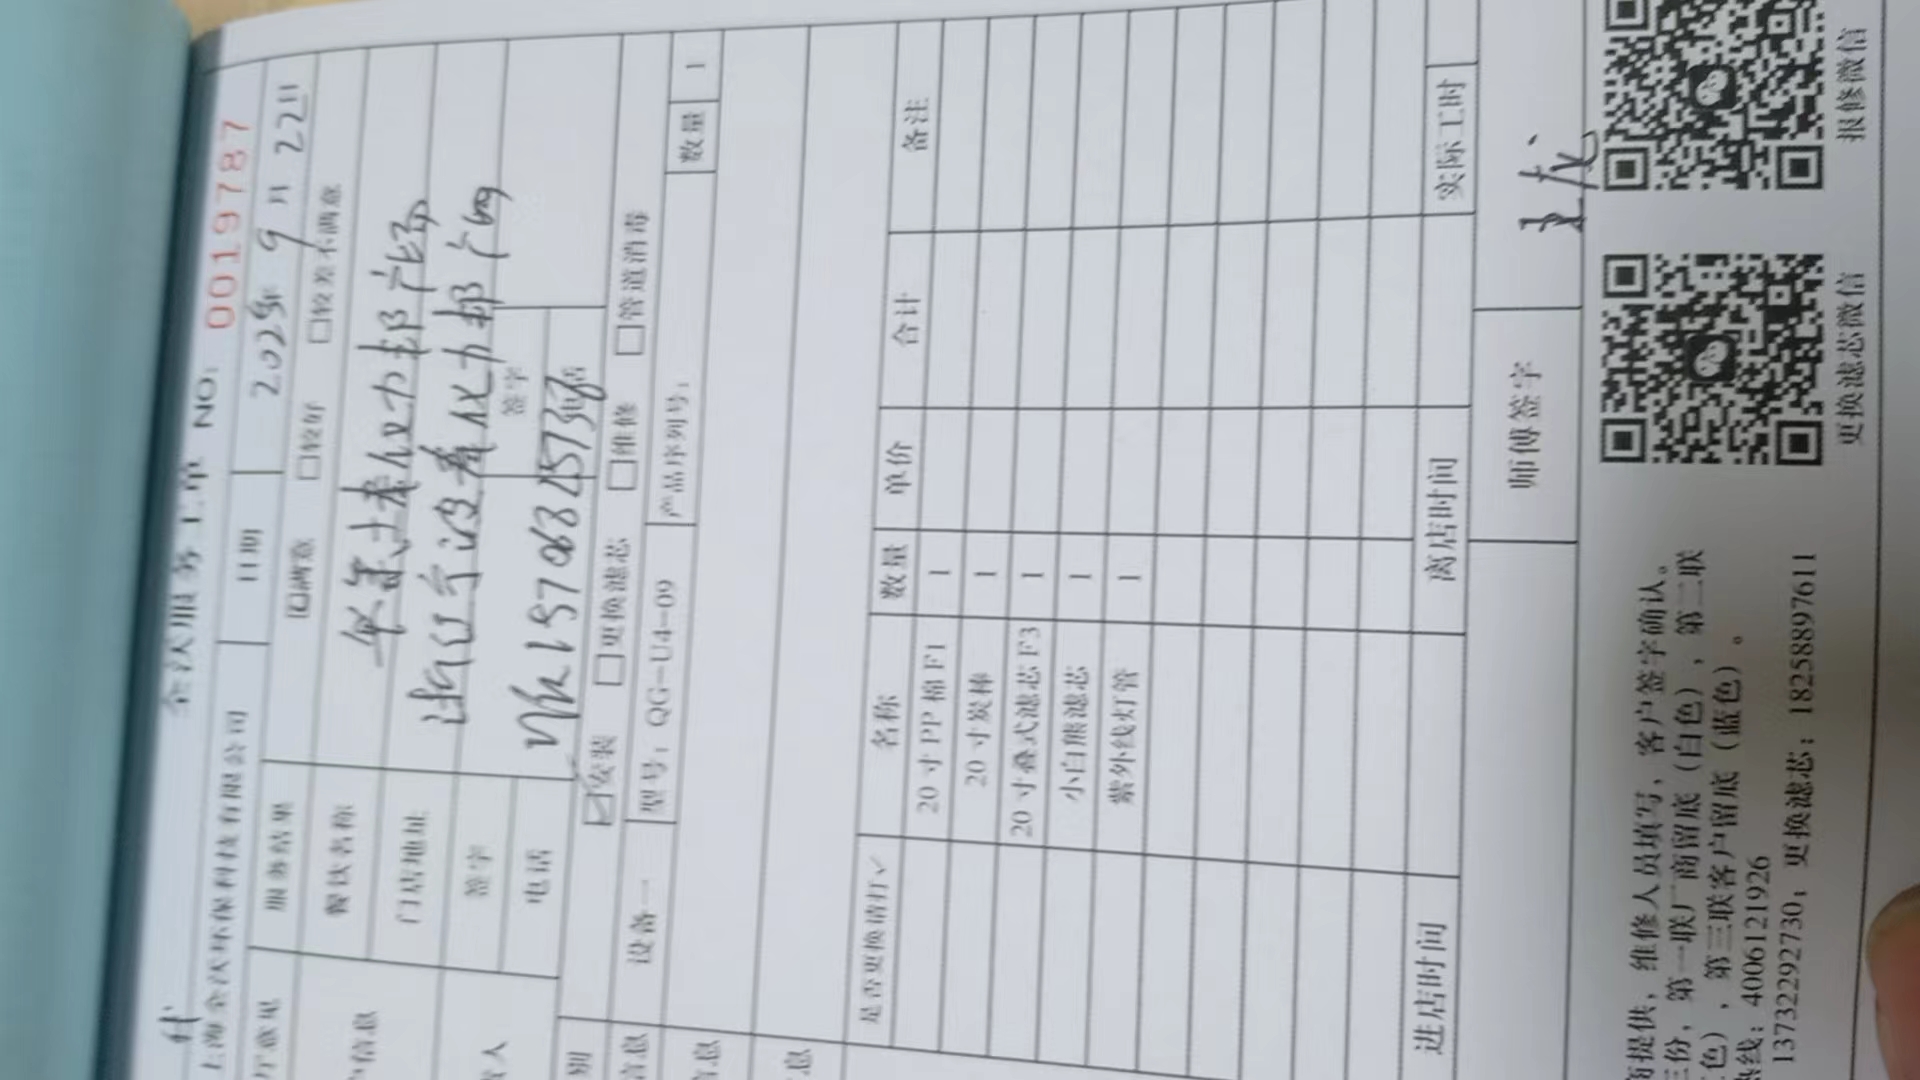 全沃服务工单 NO: 0019787
上海全沃环保科技有限公司 日期 2025年9月22日
服务结果 ☑满意 □较好 □较差不满意
餐饮名称
门店地址
签字 签字
电话 电话
☑安装 □更换滤芯 □维修 □管道消毒
设备一 型号: QG-U4-09 产品序列号: 数量 1
是否更换请打√ 名称 数量 单价 合计 备注
20寸PP棉F1 1
20寸炭棒 1
20寸叠式滤芯F3 1
小白熊滤芯 1
紫外线灯管 1
进店时间 离店时间 实际工时
师傅签字 王龙
商提供, 维修人员填写, 客户签字确认。
三份, 第一联厂商留底 (白色), 第二联
色), 第三联客户留底 (蓝色)。
热线: 4006121926
13732292730; 更换滤芯: 18258897611
更换滤芯微信 报修微信